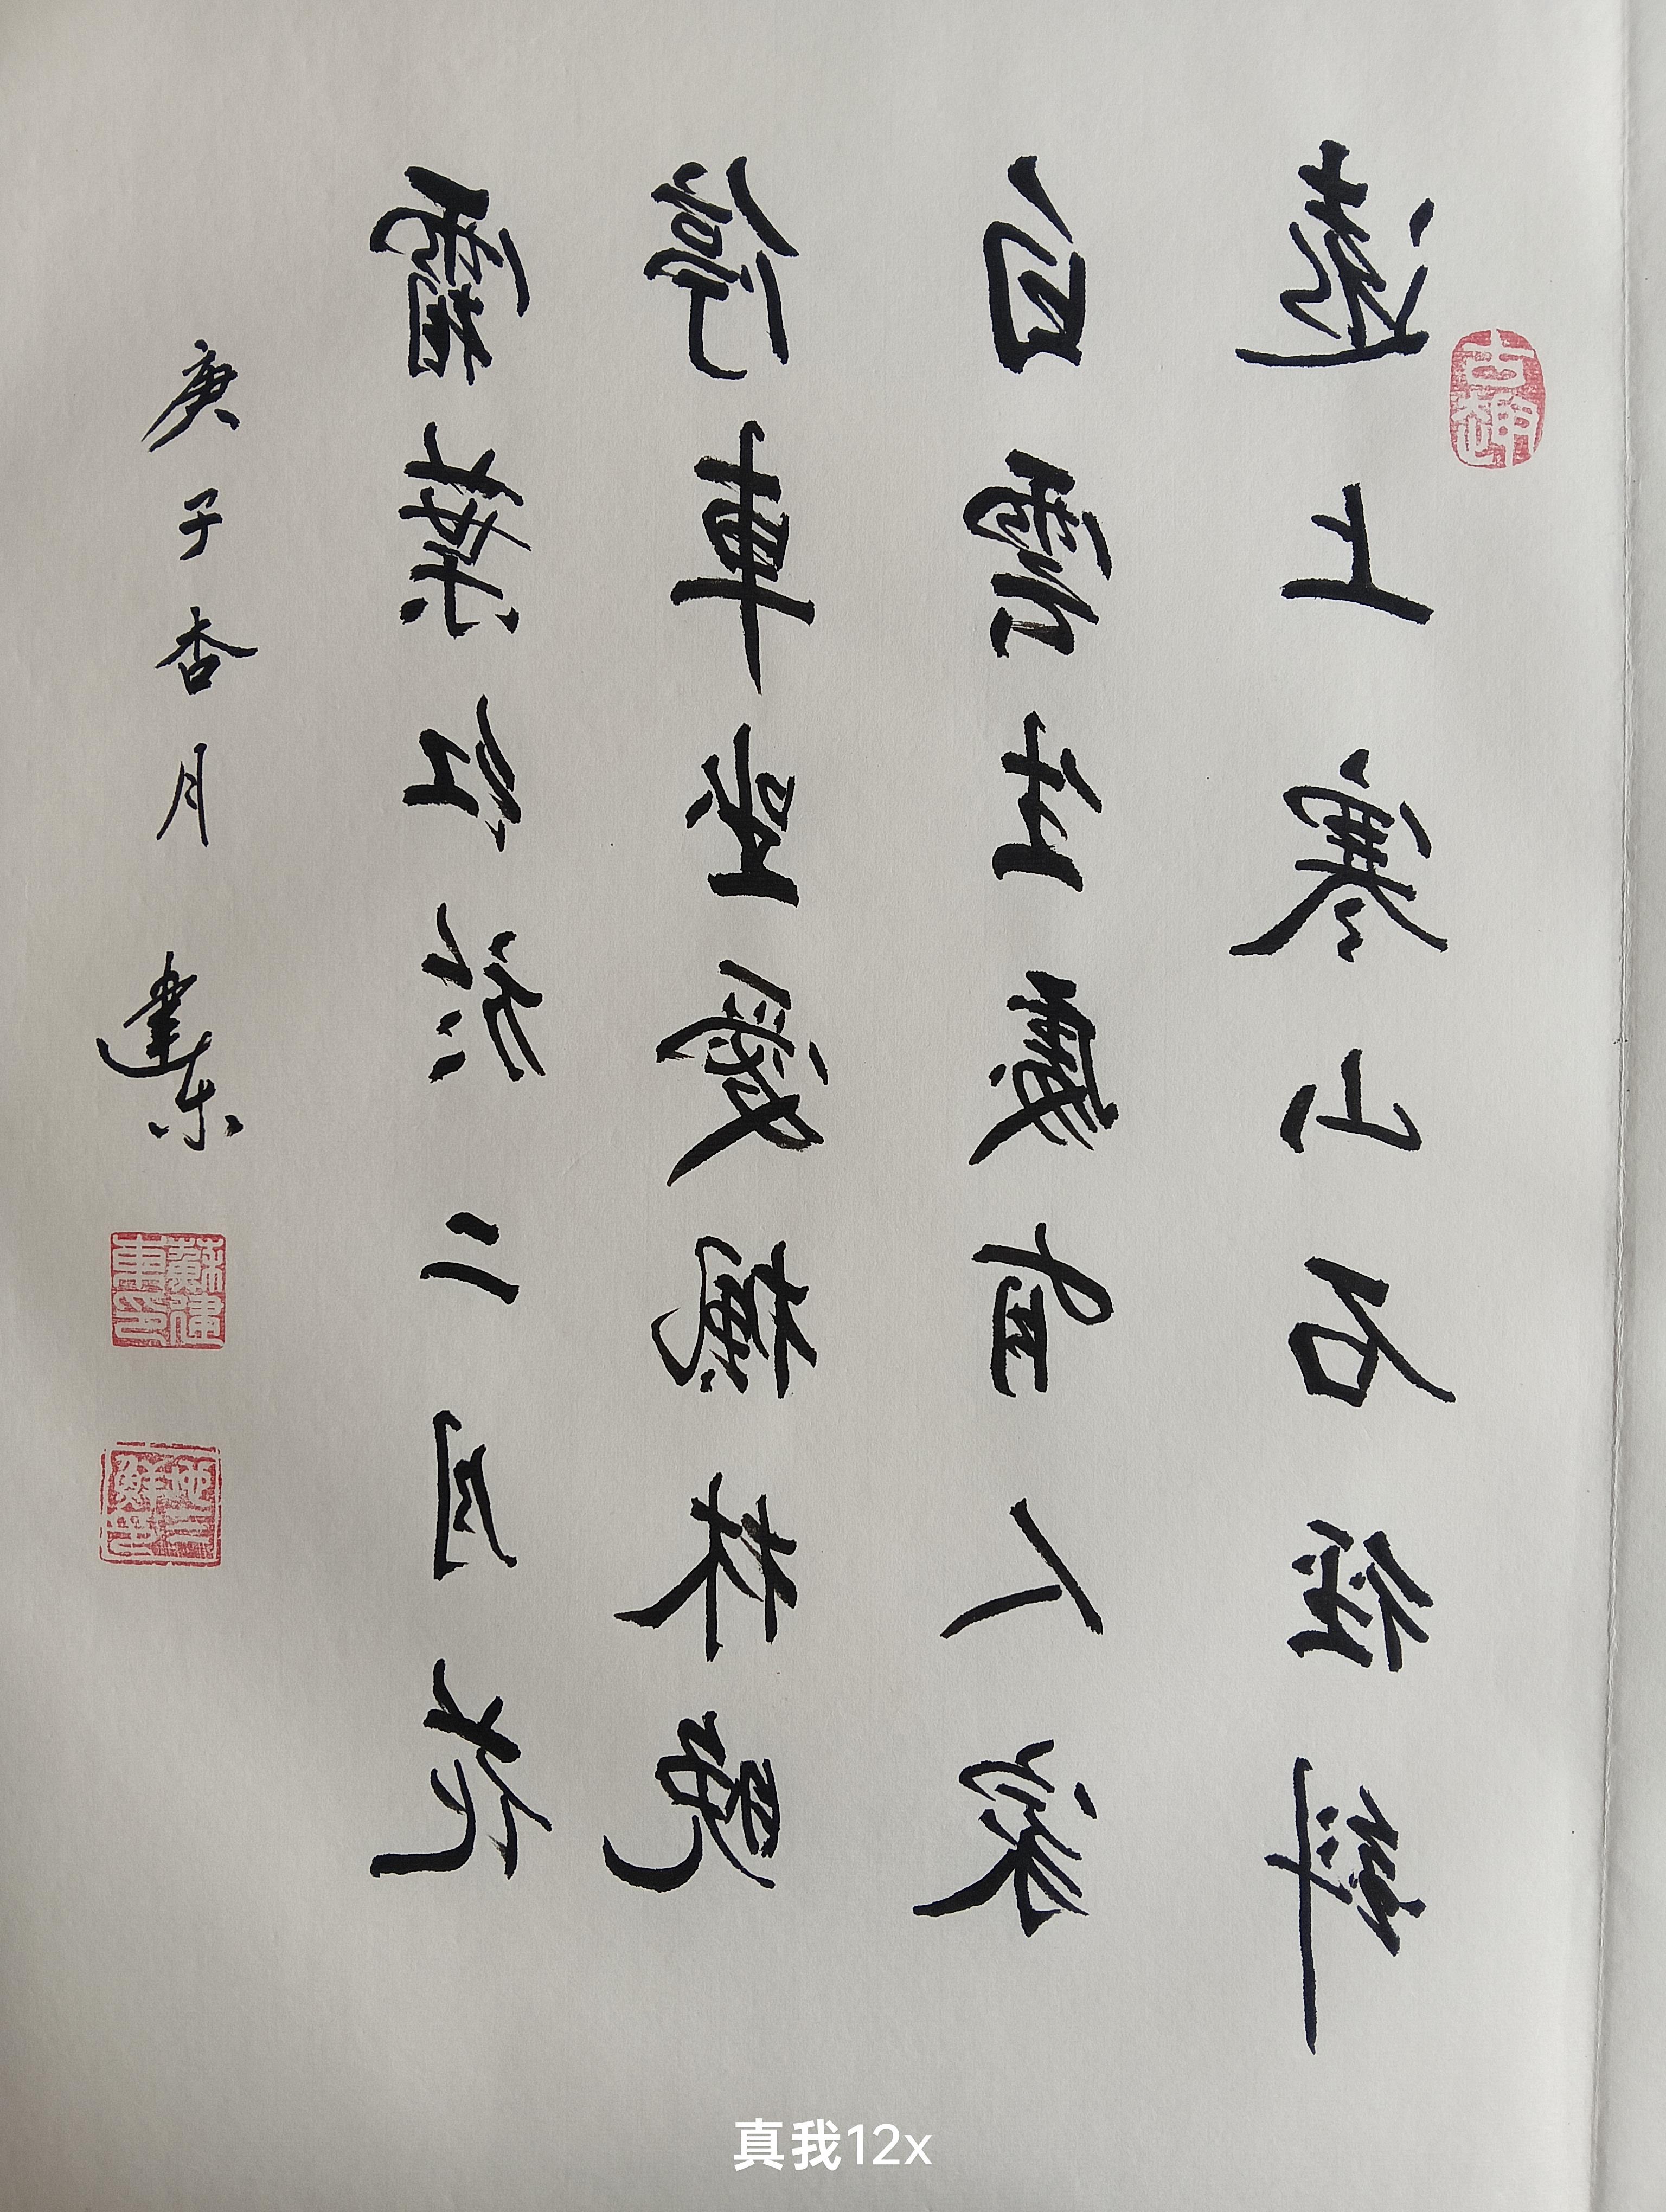 遠上寒山石徑斜
白雲生處有人家
停車坐愛楓林晚
霜葉紅於二月花
庚子杏月 建东
蘇建東印
真我12x